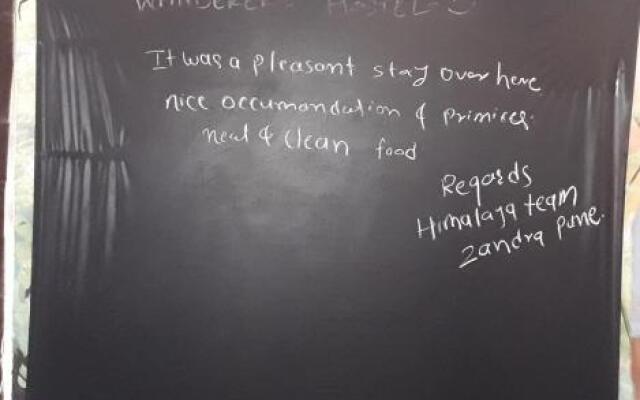 WANDERER HOSTEL
It was a pleasant stay over here
nice occumandation & primices.
neat & clean food
Regards
Himalaya team
Zandra Pune.